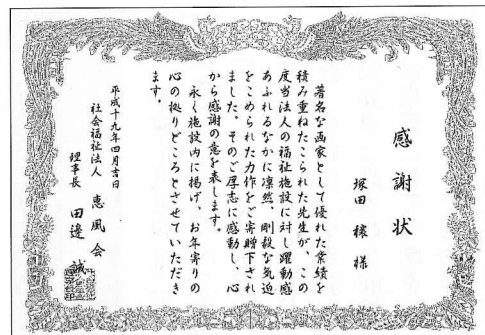 感謝状
塚田 穣 様
著名な画家として優れた業績を
積み重ねてこられた先生が、この
度当法人の福祉施設に対し躍動感
あふれるなかに凛然、剛毅な気迫
をこめられた力作をご寄贈下され
ました。そのご厚志に感動し、心
から感謝の意を表します。
永く施設内に掲げ、お年寄りの
心の拠りどころとさせていただき
ます。
平成十九年四月吉日
社会福祉法人 恵風会
理事長 田邊 誠